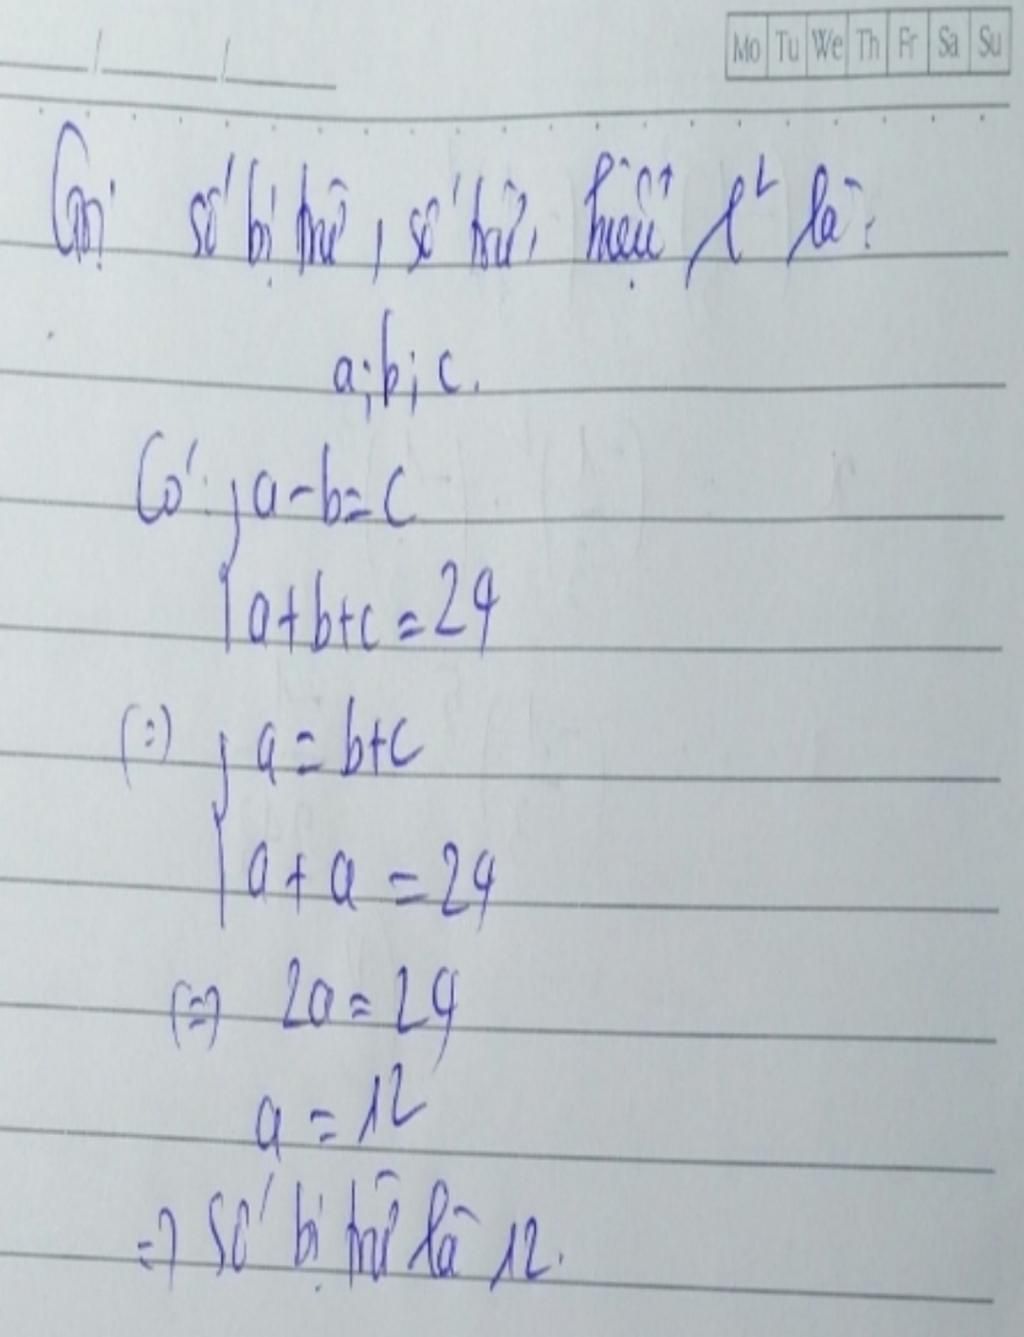 Mo Tu We Th Fr Sa Su
Gọi số bị trừ, số trừ, hiệu l² là:
a; b; c.
Có: { a - b = c
a + b + c = 24
(=) { a = b + c
a + a = 24
(=) 2a = 24
a = 12
=> Số bị trừ là 12.